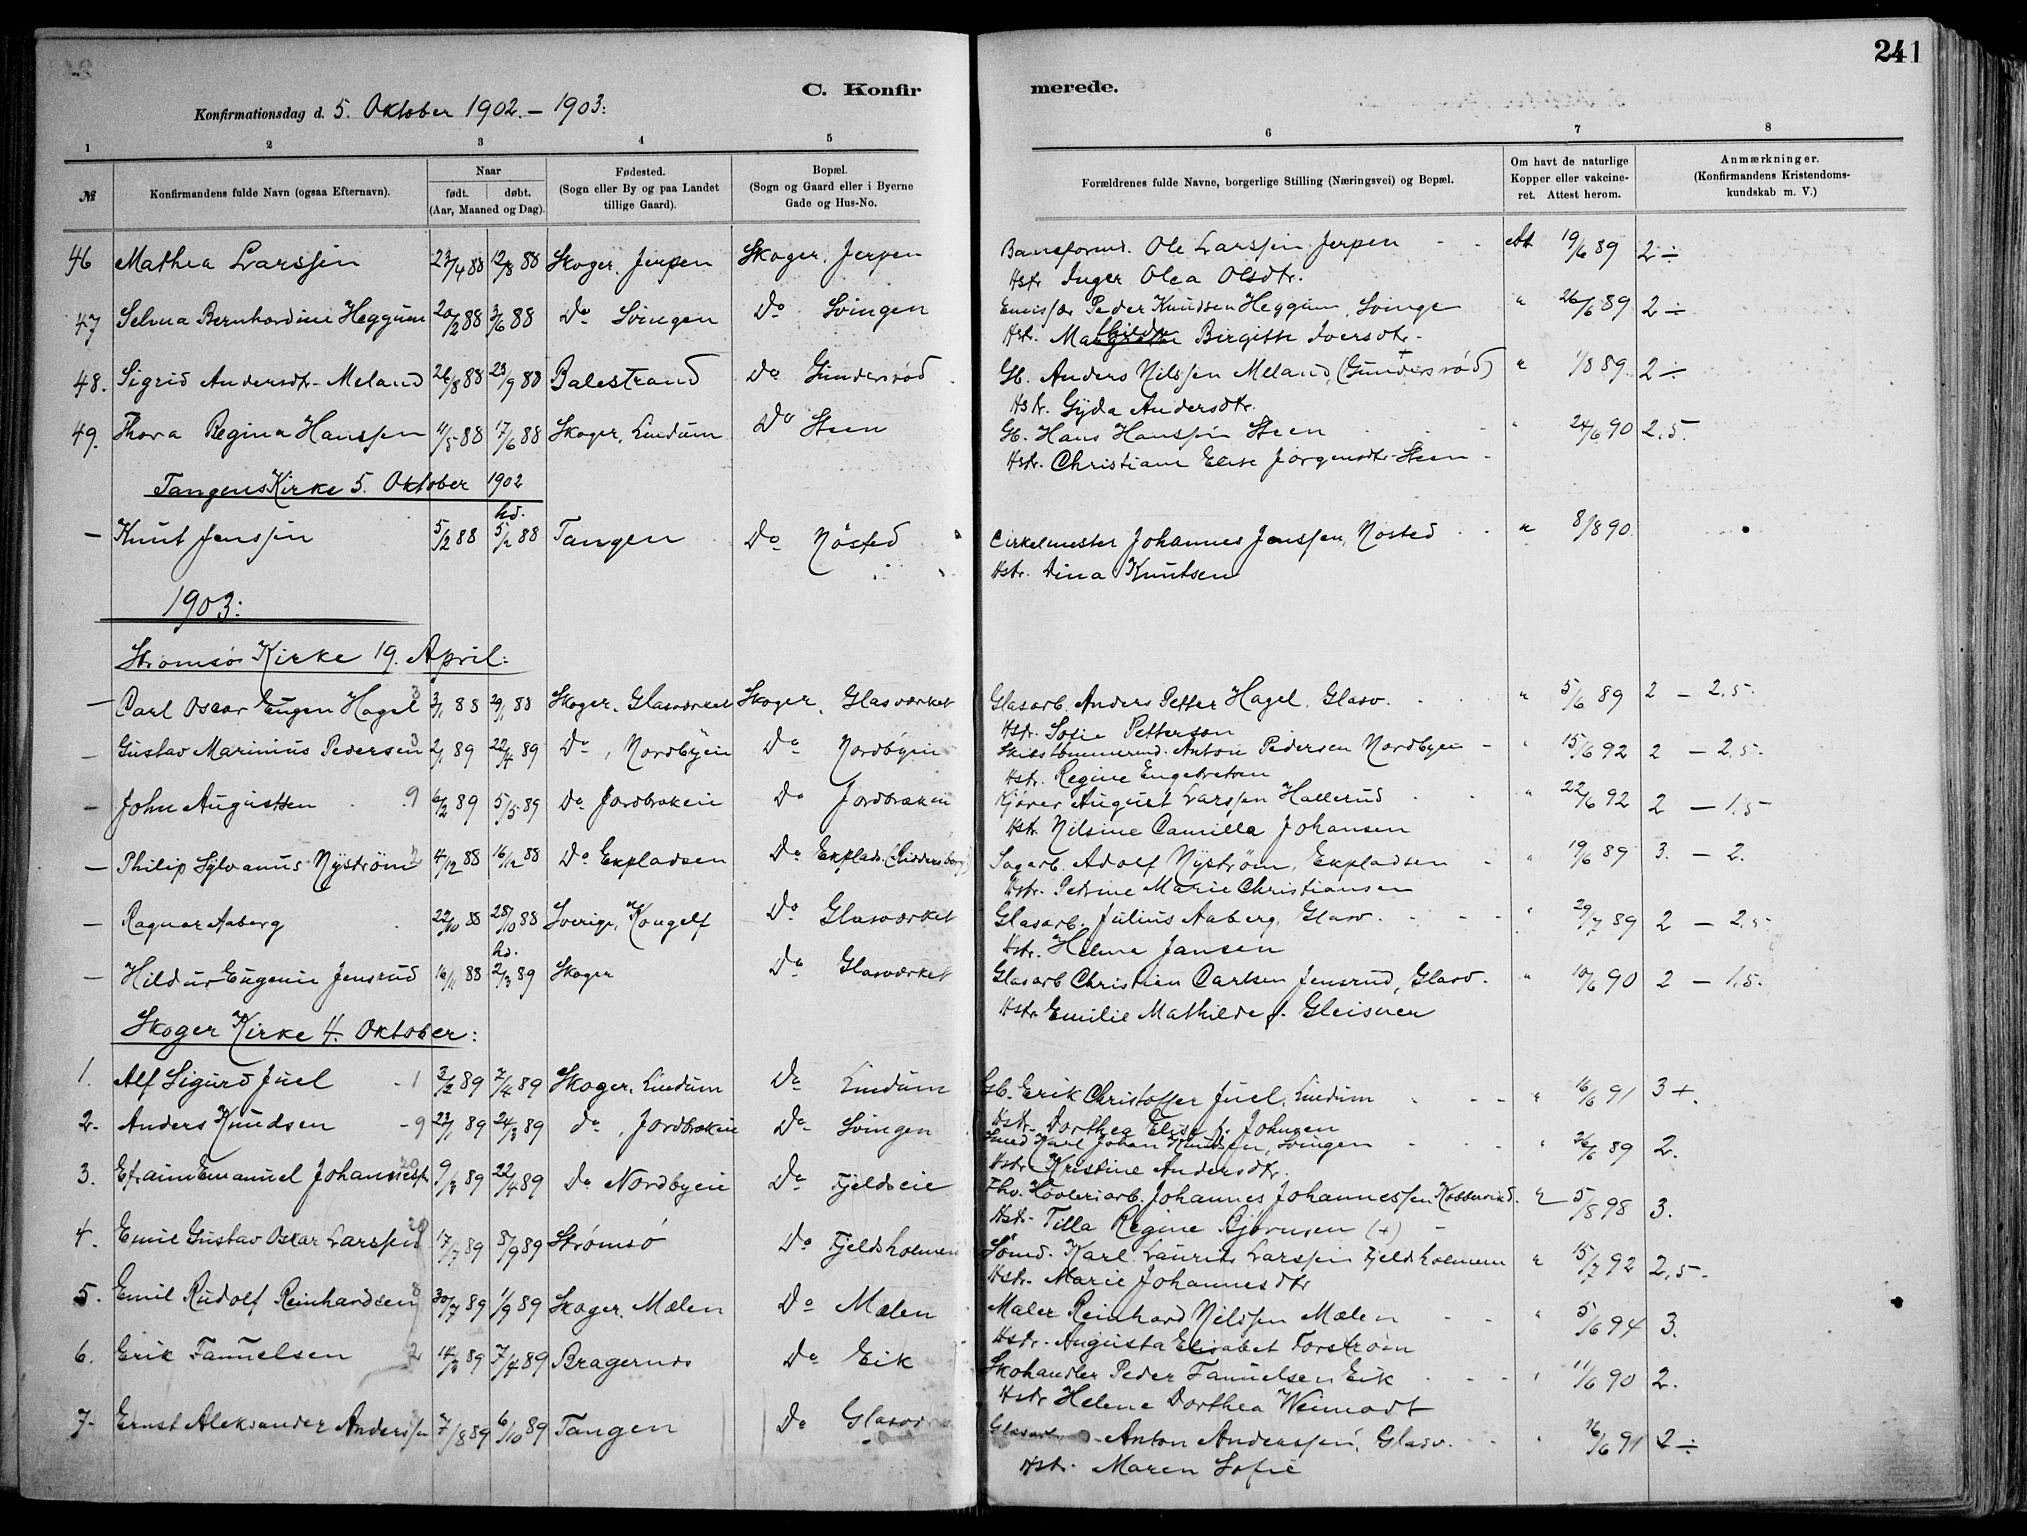 241
C. Konfirmerede.
Konfirmationsdag d. 5. Oktober 1902. – 1903:
1 2 3 4 5 6 7 8
№ Konfirmandens fulde Navn (ogsaa Efternavn). Naar født. døbt. (Aar, Maaned og Dag). Fødested. (Sogn eller By og paa Landet tillige Gaard). Bopæl. (Sogn og Gaard eller i Byerne Gade og Hus-No. Forældrenes fulde Navne, borgerlige Stilling (Næringsvei) og Bopæl. Om havt de naturlige Kopper eller vakcineret. Attest herom. Anmærkninger. (Konfirmandens Kristendomskundskab m. V.)
46 Mathea Larssen 23/4 88 12/8 88 Skoger, Jerpen Skoger, Jerpen Baneformd. Ole Larssen Jerpen Att 19/6 89 2 ÷
Hstr. Inger Olea Olsdtr.
47 Selma Bernhardine Heggum 20/2 88 3/6 88 Do Svingen Do Svingen Peder Knudsen Heggum, Svinge " 26/6 89 2 ÷
Hstr. Birgitte Iversdtr.
48. Sigrid Andersdtr. Meland 26/8 88 23/9 88 Balestrand Do Gundersrød Gb. Anders Nilssen Meland, (Gundersrød) " 1/8 89. 2 ÷
Hstr. Gyda Andersdtr.
49. Thora Regina Hanssen 11/5 88 17/6 88 Skoger, Lindum Do Steen Gb. Hans Hanssen Steen " 24/6 90 2,5.
Hstr. Christiane Elise Jørgensdtr. Steen
Tangens Kirke 5. Oktober 1902
hd.
– Knut Jenssen 5/2 88 5/2 88 Tangen Do Nøsted Cirkelmester Johannes Jenssen, Nøsted " 8/8 90.
Hstr. Dina Knutsen
1903:
Strømsø Kirke 19. April:
– Carl Oscar Eugen Hagel 3 3/1 88 29/1 88 Skoger, Glasværket Skoger, Glasværket Glasarb. Anders Petter Hagel. Glasv. " 5/6 89 2 – 2,5.
Hstr. Sofie Petterson
– Gustav Marinius Pedersen 3 2/1 89 22/4 89 Do, Nordbyen Do Nordbyen Skibstømmermd. Anton Pedersen Nordbyen " 15/6 92 2 – 2,5.
Hstr. Regine Engebretsen
– John Augustsen 9 6/2 89 5/5 89 Do Jordbrækken Do Jordbrækken Kjører August Larssen Hallerud " 22/6 92 2 – 1,5
Hstr. Nilsine Camilla Johansen
– Philip Sylvanus Nystrøm 2 4/12 88 16/12 88 Do Expladsen Do Explads. Sagarb. Adolf Nystrøm, Expladsen " 19/6 89 3. – 2.
Hstr. Petrine Marie Christiansen
– Ragnar Aaberg 22/10 88 28/10 88 Sverige, Kongelf Do Glasværket Glasarb. Julius Aaberg, Glasv. " 29/7 89 2 – 2,5
Hstr. Helma Jansen
hd.
– Hildur Eugenie Jensrud 16/11 88 2/3 89 Skoger Do Glasværket Glasarb Christian Carlsen Jensrud, Glasv. " 10/6 90 2 – 1,5.
Hstr. Emilie Mathilde f. Gleisner
Skoger Kirke 4. Oktober:
1. Alf Sigurd Juel 1 3/2 89 7/4 89 Skoger, Lindum Do Lindum Gb. Erik Christoffer Juel, Lindum " 16/6 91 3 +.
Hstr. Dorthea Elise f. Johnsen
2. Anders Knudsen 9 23/1 89 24/3 89 do, Jordbrækken Do Svingen Smed Karl Johan Knudsen, Svingen " 26/6 89 2.
Hstr. Kristine Andersdtr.
3. Efraim Emanuel Johannessen 20 9/3 89 22/4 89 Do Nordbyen Do Fjeldveie Fhv. Høvleriarb. Johannes Johannessen " 5/8 98 3.
Hstr. Tilla Regine Bjørnsen (+)
4. Emil Gustav Oskar Larssen 20 17/7 89 8/9 89 Strømsø Do Fjeldsholmen Sømd. Karl Laurits Larssen Fjeldsholmen " 15/7 92 2,5.
Hstr. Marie Johannesdtr
5. Emil Rudolf Reinhardsen 8 30/7 89 1/9 89 Skoger, Mælen Do Mælen Maler Reinhard Nilssen Mælen " 5/6 94 3.
Hstr. Augusta Elisabet Forstrøm
6. Erik Fanuelsen 2 14/3 89 7/4 89 Bragernes Do Eik Skohandler Peder Fanuelsen Eik " 11/6 90 2.
Hstr Helene Dorthea Weimodt
7. Ernst Aleksander Anderssen 7/8 89 6/10 89 Tangen Do Glasv Glasarb. Anton Anderssen, Glasv. " 26/6 91 2 ÷
Hstr. Maren Sofie